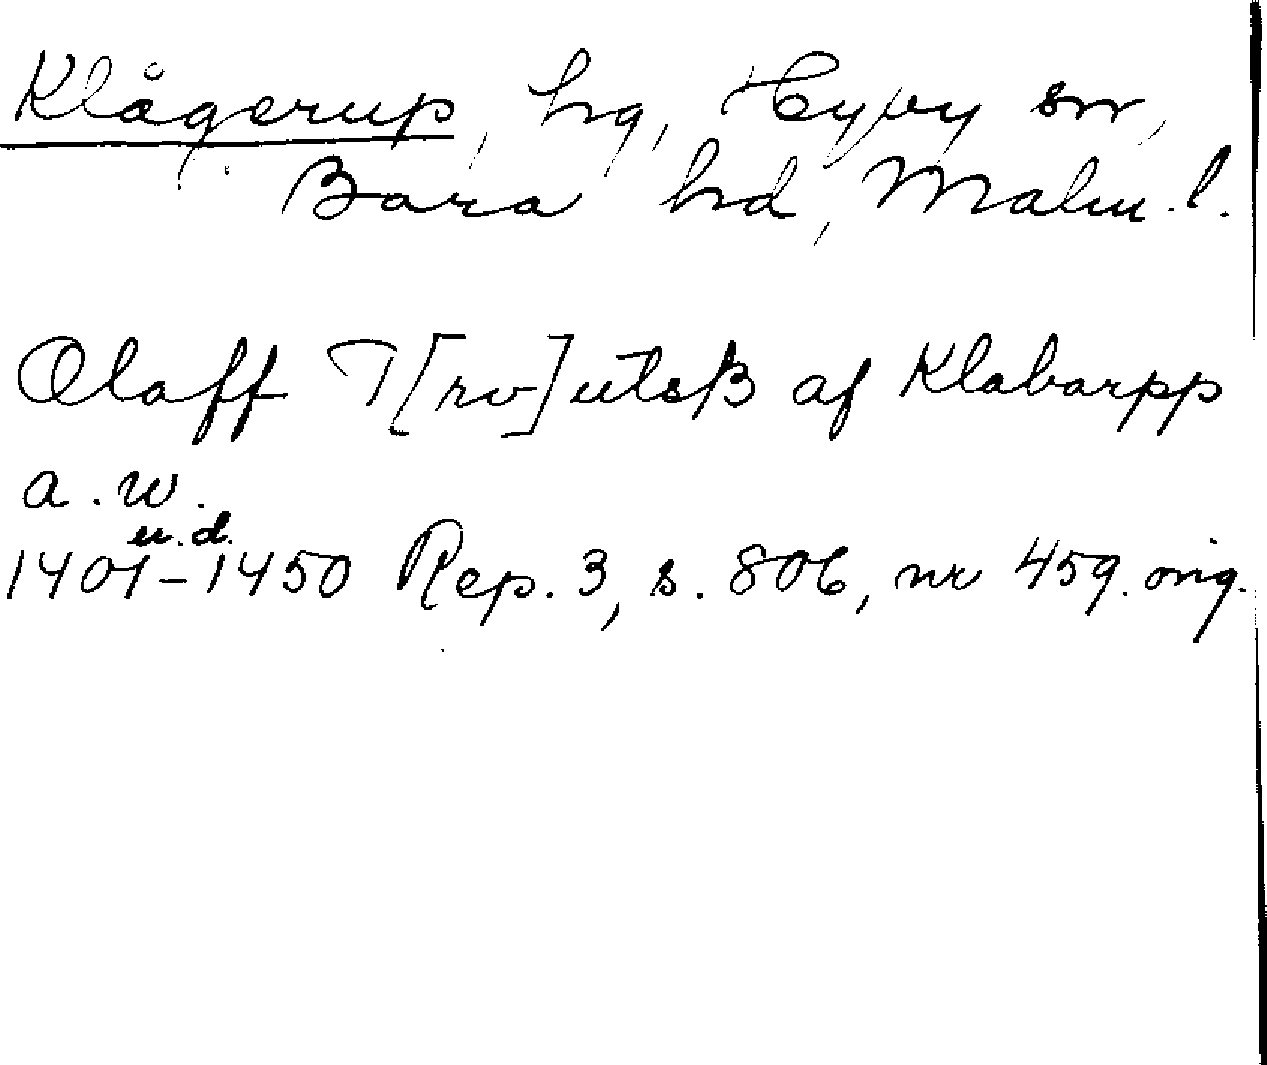 Klågerup, hg, Hyby sn,
Bara hd, Malm. l.
Olaff T[rv]utsß af Klabarpp
a. w.
u. d.
1401-1450 Rep. 3, s. 806, nr 459. orig.